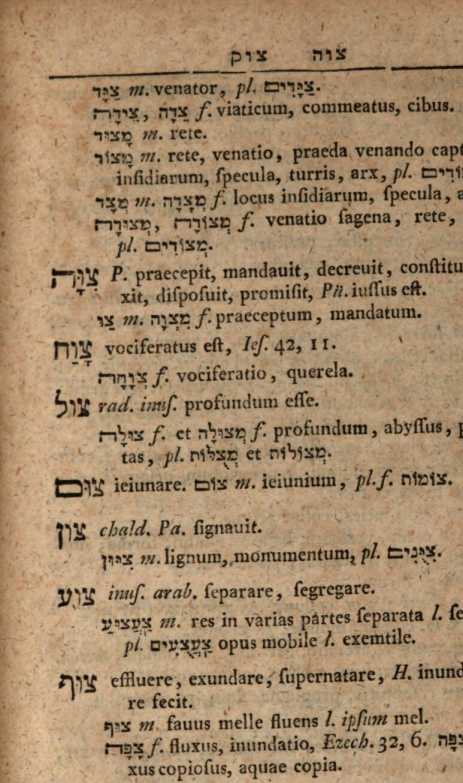 צוה צוק
צַיָּד m. venator, pl. צַיָּדִים.
צֵידָה, צֵדָה f. viaticum, commeatus, cibus.
מָצוּד m. rete.
מָצוֹד m. rete, venatio, praeda venando capt
inſidiarum, ſpecula, turris, arx, pl.
מְצָד m. מְצָדָה f. locus inſidiarum, ſpecula, a
מְצוּדָה, מְצוֹדָה f. venatio ſagena, rete,
pl. מְצוֹדִים.
צִוָּה P. praecepit, mandauit, decreuit, conſtitu
xit, diſpoſuit, promiſit, Pü. iuſſus eſt.
צַו m. מִצְוָה f. praeceptum, mandatum.
צָוַח vociferatus eſt, Ieſ. 42, 11.
צְוָחָה f. vociferatio, querela.
צוּל rad. inuſ. profundum eſſe.
צוּלָה f. et מְצוּלָה f. profundum, abyſſus, p
tas, pl. מְצוֹלוֹת et מְצֻלוֹת.
צוּם ieiunare. צוֹם m. ieiunium, pl. f. צוֹמוֹת.
צון chald. Pa. ſignauit.
צִיּוּן m. lignum, monumentum, pl. צִיֻּנִים.
צוּעַ inuſ. arab. ſeparare, ſegregare.
צַעֲצוּעַ m. res in varias partes ſeparata l. ſe
pl. צַעֲצֻעִים opus mobile l. exemtile.
צוּף effluere, exundare, ſupernatare, H. inund
re fecit.
צוּף m. fauus melle fluens l. ipſum mel.
צָפָה f. fluxus, inundatio, Ezech. 32, 6. צָפָה
xus copioſus, aquae copia.